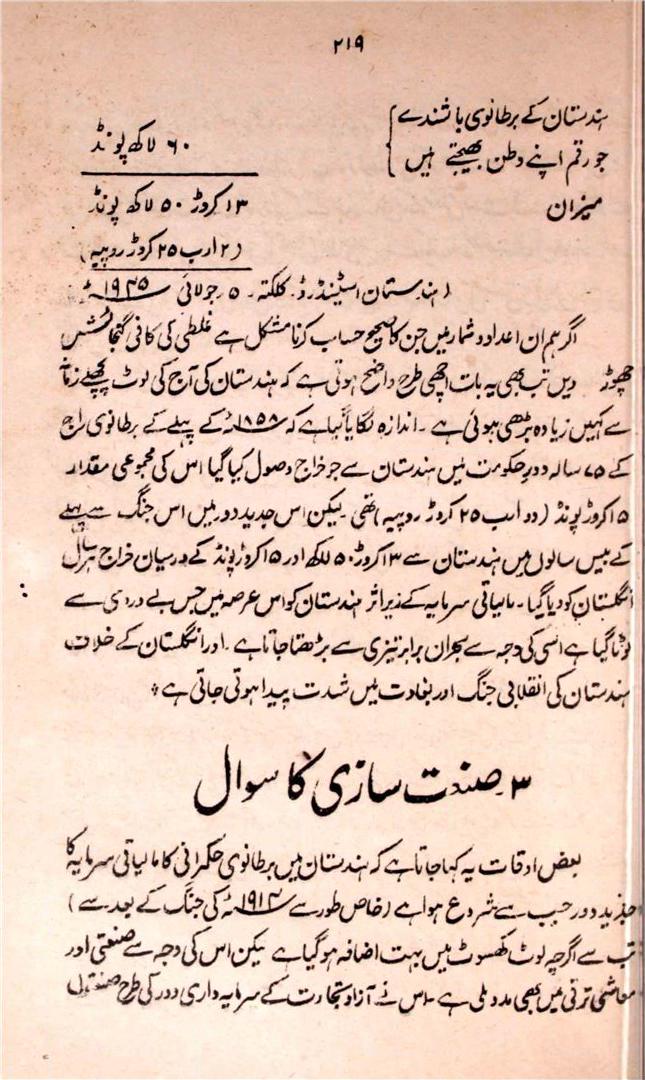 ۲۱۹
ہندستان کے برطانوی باشندے
جو رقم اپنے وطن بھیجتے ہیں } ۶۰ لاکھ پونڈ
میزان ۱۳ کروڑ ۵۰ لاکھ پونڈ
(۲ ارب ۲۵ کروڑ روپیہ)
(ہندستان اسٹینڈرڈ۔ کلکتہ۔ ۵ جولائی ۱۹۳۵ء)
اگر ہم ان اعداد و شمار میں جن کا صحیح حساب کرنا مشکل ہے غلطی کی کافی گنجائش
چھوڑ دیں تب بھی یہ بات اچھی طرح واضح ہوتی ہے کہ ہندستان کی آج کی لوٹ پچھلے زمانہ
سے کہیں زیادہ بڑھی ہوئی ہے۔ اندازہ لگایا گیا ہے کہ ۱۸۵۸ء کے پہلے کے برطانوی راج
کے ۷۵ سالہ دورِ حکومت میں ہندستان سے جو خراج وصول کیا گیا اس کی مجموعی مقدار
۱۵ کروڑ پونڈ (دو ارب ۲۵ کروڑ روپیہ) تھی۔ لیکن اس جدید دور میں اس جنگ سے پہلے
کے بیس سالوں میں ہندستان سے ۱۳ کروڑ ۵۰ لاکھ اور ۱۵ کروڑ پونڈ کے درمیان خراج ہر سال
انگلستان کو دیا گیا۔ مالیاتی سرمایہ کے زیر اثر ہندستان کو اس عرصہ میں جس بے دردی سے
لوٹا گیا ہے اسی کی وجہ سے بحران برابر تیزی سے بڑھتا جاتا ہے۔ اور انگلستان کے خلاف
ہندستان کی انقلابی جنگ اور بغاوت میں شدت پیدا ہوتی جاتی ہے ٭
۳۔ صنعت سازی کا سوال
بعض اوقات یہ کہا جاتا ہے کہ ہندستان میں برطانوی حکمرانی کا مالیاتی سرمایہ کا
جدید دور جب سے شروع ہوا ہے (خاص طور سے ۱۹۱۴ء کی جنگ کے بعد سے)
تب سے اگرچہ لوٹ کھسوٹ میں بہت اضافہ ہو گیا ہے لیکن اس کی وجہ سے صنعتی اور
معاشی ترقی میں بھی مدد ملی ہے۔ اس نے آزاد تجارت کے سرمایہ داری دور کی طرح صنعتوں